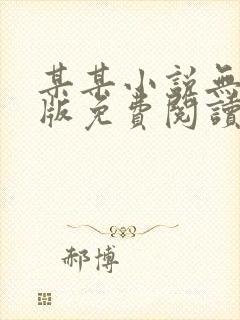 某某小說無
版免費閱讀
郝博